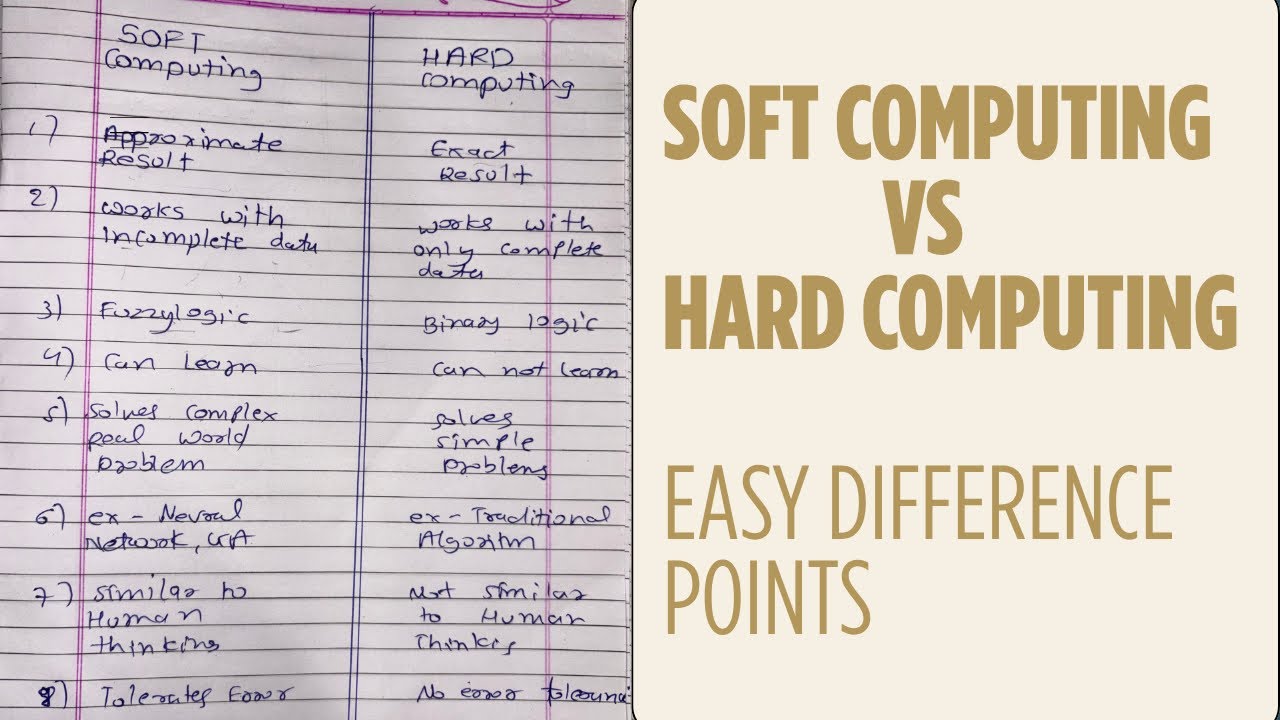 SOFT
Computing
HARD
Computing
1)
Approximate
Result
Exact
Result
2)
works with
incomplete data
works with
only complete
data
3)
Fuzzylogic
Binary logic
4)
Can Learn
Can not learn
5)
Solves Complex
real world
problem
solves
simple
problems
6)
ex - Nevral
Network, GA
ex - Traditional
7)
similar to
Human
thinking
Not similar
to Human
8)
Tolerates Error
No error
SOFT COMPUTING
VS
HARD COMPUTING
EASY DIFFERENCE
POINTS